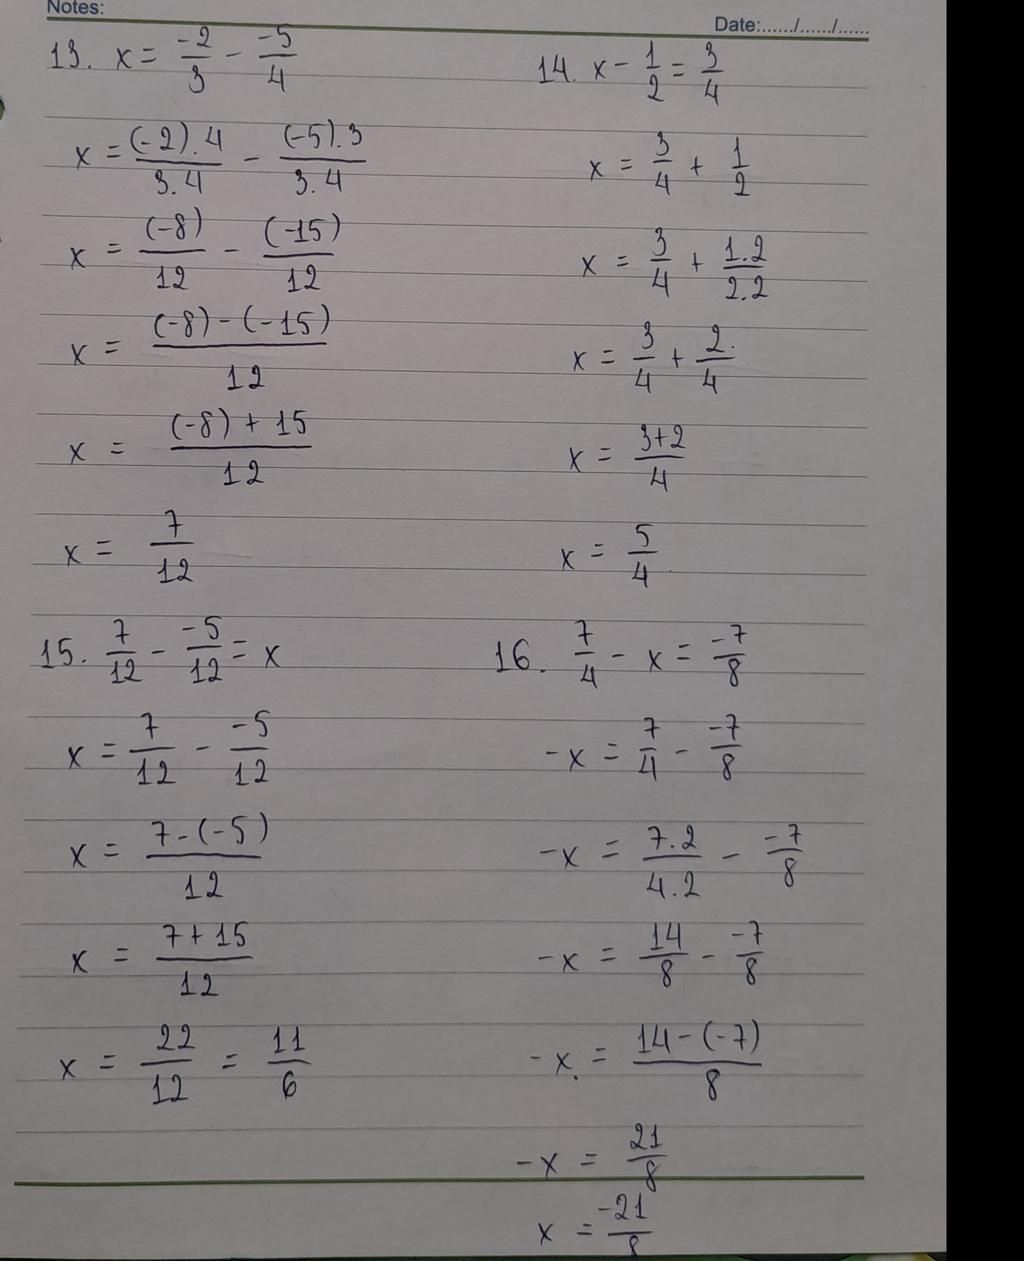 Notes:
Date:....../....../......
13. x = -2/3 - -5/4
x = (-2).4/3.4 - (-5).3/3.4
x = (-8)/12 - (-15)/12
x = (-8)-(-15)/12
x = (-8)+15/12
x = 7/12
14. x - 1/2 = 3/4
x = 3/4 + 1/2
x = 3/4 + 1.2/2.2
x = 3/4 + 2/4
x = 3+2/4
x = 5/4
15. 7/12 - -5/12 = x
x = 7/12 - -5/12
x = 7-(-5)/12
x = 7+15/12
x = 22/12 = 11/6
16. 7/4 - x = -7/8
-x = 7/4 - -7/8
-x = 7.2/4.2 - -7/8
-x = 14/8 - -7/8
-x = 14-(-7)/8
-x = 21/8
x = -21/8